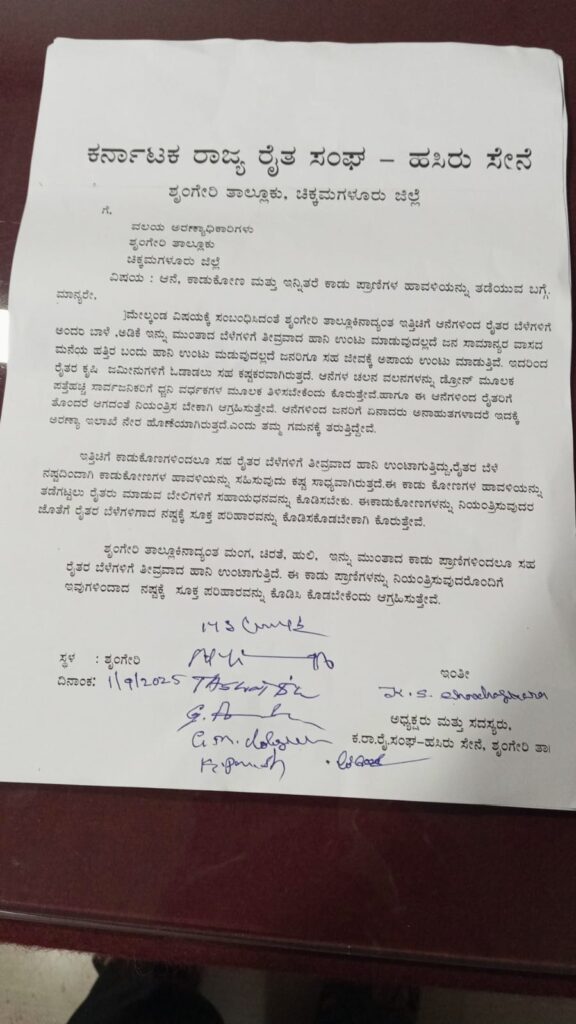 ಕರ್ನಾಟಕ ರಾಜ್ಯ ರೈತ ಸಂಘ – ಹಸಿರು ಸೇನೆ
ಶೃಂಗೇರಿ ತಾಲ್ಲೂಕು, ಚಿಕ್ಕಮಗಳೂರು ಜಿಲ್ಲೆ
ಗೆ.
ವಲಯ ಅರಣ್ಯಾಧಿಕಾರಿಗಳು
ಶೃಂಗೇರಿ ತಾಲ್ಲೂಕು
ಚಿಕ್ಕಮಗಳೂರು ಜಿಲ್ಲೆ
ವಿಷಯ : ಆನೆ, ಕಾಡುಕೋಣ ಮತ್ತು ಇನ್ನಿತರೆ ಕಾಡು ಪ್ರಾಣಿಗಳ ಹಾವಳಿಯನ್ನು ತಡೆಯುವ ಬಗ್ಗೆ.
ಮಾನ್ಯರೇ,
]ಮೇಲ್ಕಂಡ ವಿಷಯಕ್ಕೆ ಸಂಬಂಧಿಸಿದಂತೆ ಶೃಂಗೇರಿ ತಾಲ್ಲೂಕಿನಾದ್ಯಂತ ಇತ್ತಿಚಿಗೆ ಆನೆಗಳಿಂದ ರೈತರ ಬೆಳೆಗಳಿಗೆ
ಅಂದರಿ ಬಾಳೆ ,ಅಡಿಕೆ ಇನ್ನು ಮುಂತಾದ ಬೆಳೆಗಳಿಗೆ ತೀವ್ರವಾದ ಹಾನಿ ಉಂಟು ಮಾಡುವುದಲ್ಲದೆ ಜನ ಸಾಮಾನ್ಯರ ವಾಸದ
ಮನೆಯ ಹತ್ತಿರ ಬಂದು ಹಾನಿ ಉಂಟು ಮಡುವುದಲ್ಲದೆ ಜನರಿಗೂ ಸಹ ಜೀವಕ್ಕೆ ಅಪಾಯ ಉಂಟು ಮಾಡುತ್ತಿವೆ. ಇದರಿಂದ
ರೈತರ ಕೃಷಿ ಜಮೀನುಗಳಿಗೆ ಓಡಾಡಲು ಸಹ ಕಷ್ಟಕರವಾಗಿರುತ್ತದೆ. ಆನೆಗಳ ಚಲನ ವಲನಗಳನ್ನು ಡ್ರೋನ್ ಮೂಲಕ
ಪತ್ತೆಹಚ್ಚಿ ಸಾರ್ವಜನಿಕರಿಗೆ ಧ್ವನಿ ವರ್ಧಕಗಳ ಮೂಲಕ ತಿಳಿಸಬೇಕೆಂದು ಕೊರುತ್ತೇವೆ.ಹಾಗೂ ಈ ಆನೆಗಳಿಂದ ರೈತರಿಗೆ
ತೊಂದರೆ ಆಗದಂತೆ ನಿಯಂತ್ರಿಸ ಬೇಕಾಗಿ ಆಗ್ರಹಿಸುತ್ತೇವೆ. ಆನೆಗಳಿಂದ ಜನರಿಗೆ ಏನಾದರು ಅನಾಹುತಗಳಾದರೆ ಇದಕ್ಕೆ
ಅರಣ್ಯಾ ಇಲಾಖೆ ನೇರ ಹೊಣೆಯಾಗಿರುತ್ತದೆ.ಎಂದು ತಮ್ಮ ಗಮನಕ್ಕೆ ತರುತ್ತಿದ್ದೇವೆ.
ಇತ್ತಿಚಿಗೆ ಕಾಡುಕೊಣಗಳಿಂದಲೂ ಸಹ ರೈತರ ಬೆಳೆಗಳಿಗೆ ತೀವ್ರವಾದ ಹಾನಿ ಉಂಟಾಗುತ್ತಿದ್ದು,ರೈತರ ಬೆಳೆ
ನಷ್ಟದಿಂದಾಗಿ ಕಾಡುಕೋಣಗಳ ಹಾವಳಿಯನ್ನು ಸಹಿಸುವುದು ಕಷ್ಟ ಸಾಧ್ಯವಾಗಿರುತ್ತದೆ.ಈ ಕಾಡು ಕೋಣಗಳ ಹಾವಳಿಯನ್ನು
ತಡೆಗಟ್ಟಲು ರೈತರು ಮಾಡುವ ಬೇಲಿಗಳಿಗೆ ಸಹಾಯಧನವನ್ನು ಕೊಡಿಸಬೇಕು. ಈಕಾಡುಕೋಣಗಳನ್ನು ನಿಯಂತ್ರಿಸುವುದರ
ಜೊತೆಗೆ ರೈತರ ಬೆಳೆಗಳಿಗಾದ ನಷ್ಟಕ್ಕೆ ಸೂಕ್ತ ಪರಿಹಾರವನ್ನು ಕೊಡಿಸಕೊಡಬೇಕಾಗಿ ಕೊರುತ್ತೇವೆ.
ಶೃಂಗೇರಿ ತಾಲ್ಲೂಕಿನಾದ್ಯಂತ ಮಂಗ, ಚಿರತೆ, ಹುಲಿ, ಇನ್ನು ಮುಂತಾದ ಕಾಡು ಪ್ರಾಣಿಗಳಿಂದಲೂ ಸಹ
ರೈತರ ಬೆಳೆಗಳಿಗೆ ತೀವ್ರವಾದ ಹಾನಿ ಉಂಟಾಗುತ್ತಿದೆ. ಈ ಕಾಡು ಪ್ರಾಣಿಗಳನ್ನು ನಿಯಂತ್ರಿಸುವುದರೊಂದಿಗೆ
ಇವುಗಳಿಂದಾದ ನಷ್ಟಕ್ಕೆ ಸೂಕ್ತ ಪರಿಹಾರವನ್ನು ಕೊಡಿಸಿ ಕೊಡಬೇಕೆಂದು ಆಗ್ರಹಿಸುತ್ತೇವೆ.
ಸ್ಥಳ : ಶೃಂಗೇರಿ
ಇಂತೀ
ದಿನಾಂಕ: 1/9/2025
ಅಧ್ಯಕ್ಷರು ಮತ್ತು ಸದಸ್ಯರು,
ಕ.ರಾ.ರೈ.ಸಂಘ-ಹಸಿರು ಸೇನೆ, ಶೃಂಗೇರಿ ತಾ।